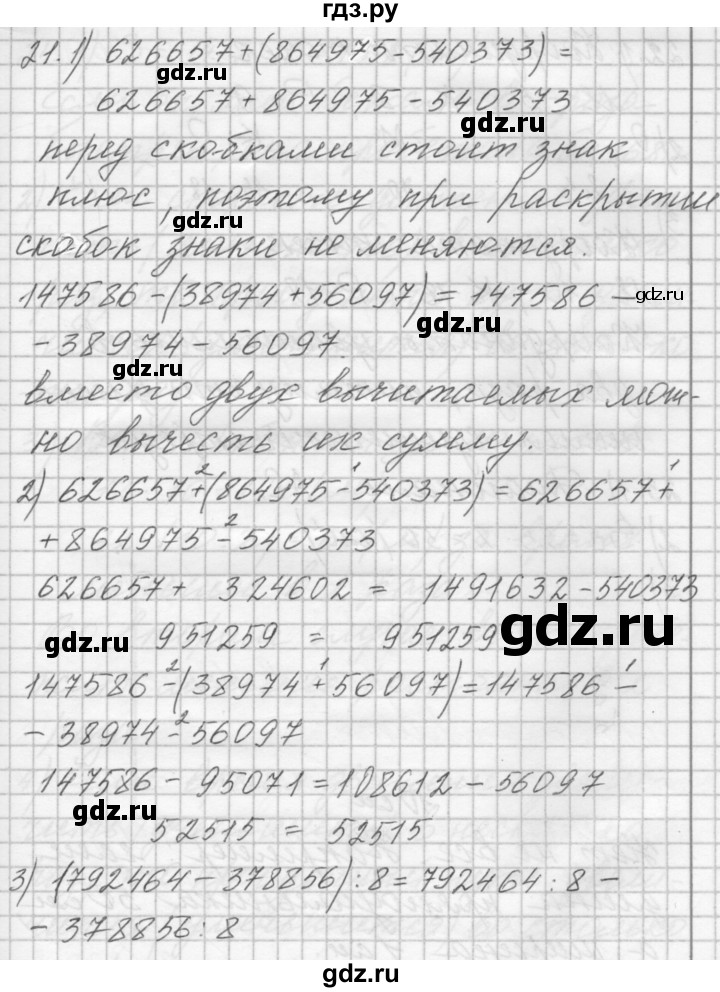 гдз.ру
21.1) 626657+(864975-540373)=
gdz.ru
626657+864975-540373
gdz.ru
перед скобками стоит знак
плюс, поэтому при раскрытии
gdz.ru
скобок знаки не меняются.
147586-(38974+56097)=147586-
gdz.ru
gdz.ru
-38974-56097.
gdz.ru
вместо двух вычитаемых мож-
но вычесть их сумму.
2) 626657+²(864975-¹540373)=626657+¹
+864975-²540373
626657+ 324602 = 1491632-540373
gdz.ru
951259 = 951259
gdz.ru
147586-²(38974+¹56097)=147586-¹
-38974-²56097
147586-95071=108612-56097
gdz.ru
52515 = 52515
3) (792464-378856):8=792464:8-
-378856:8
gdz.ru
gdz.ru